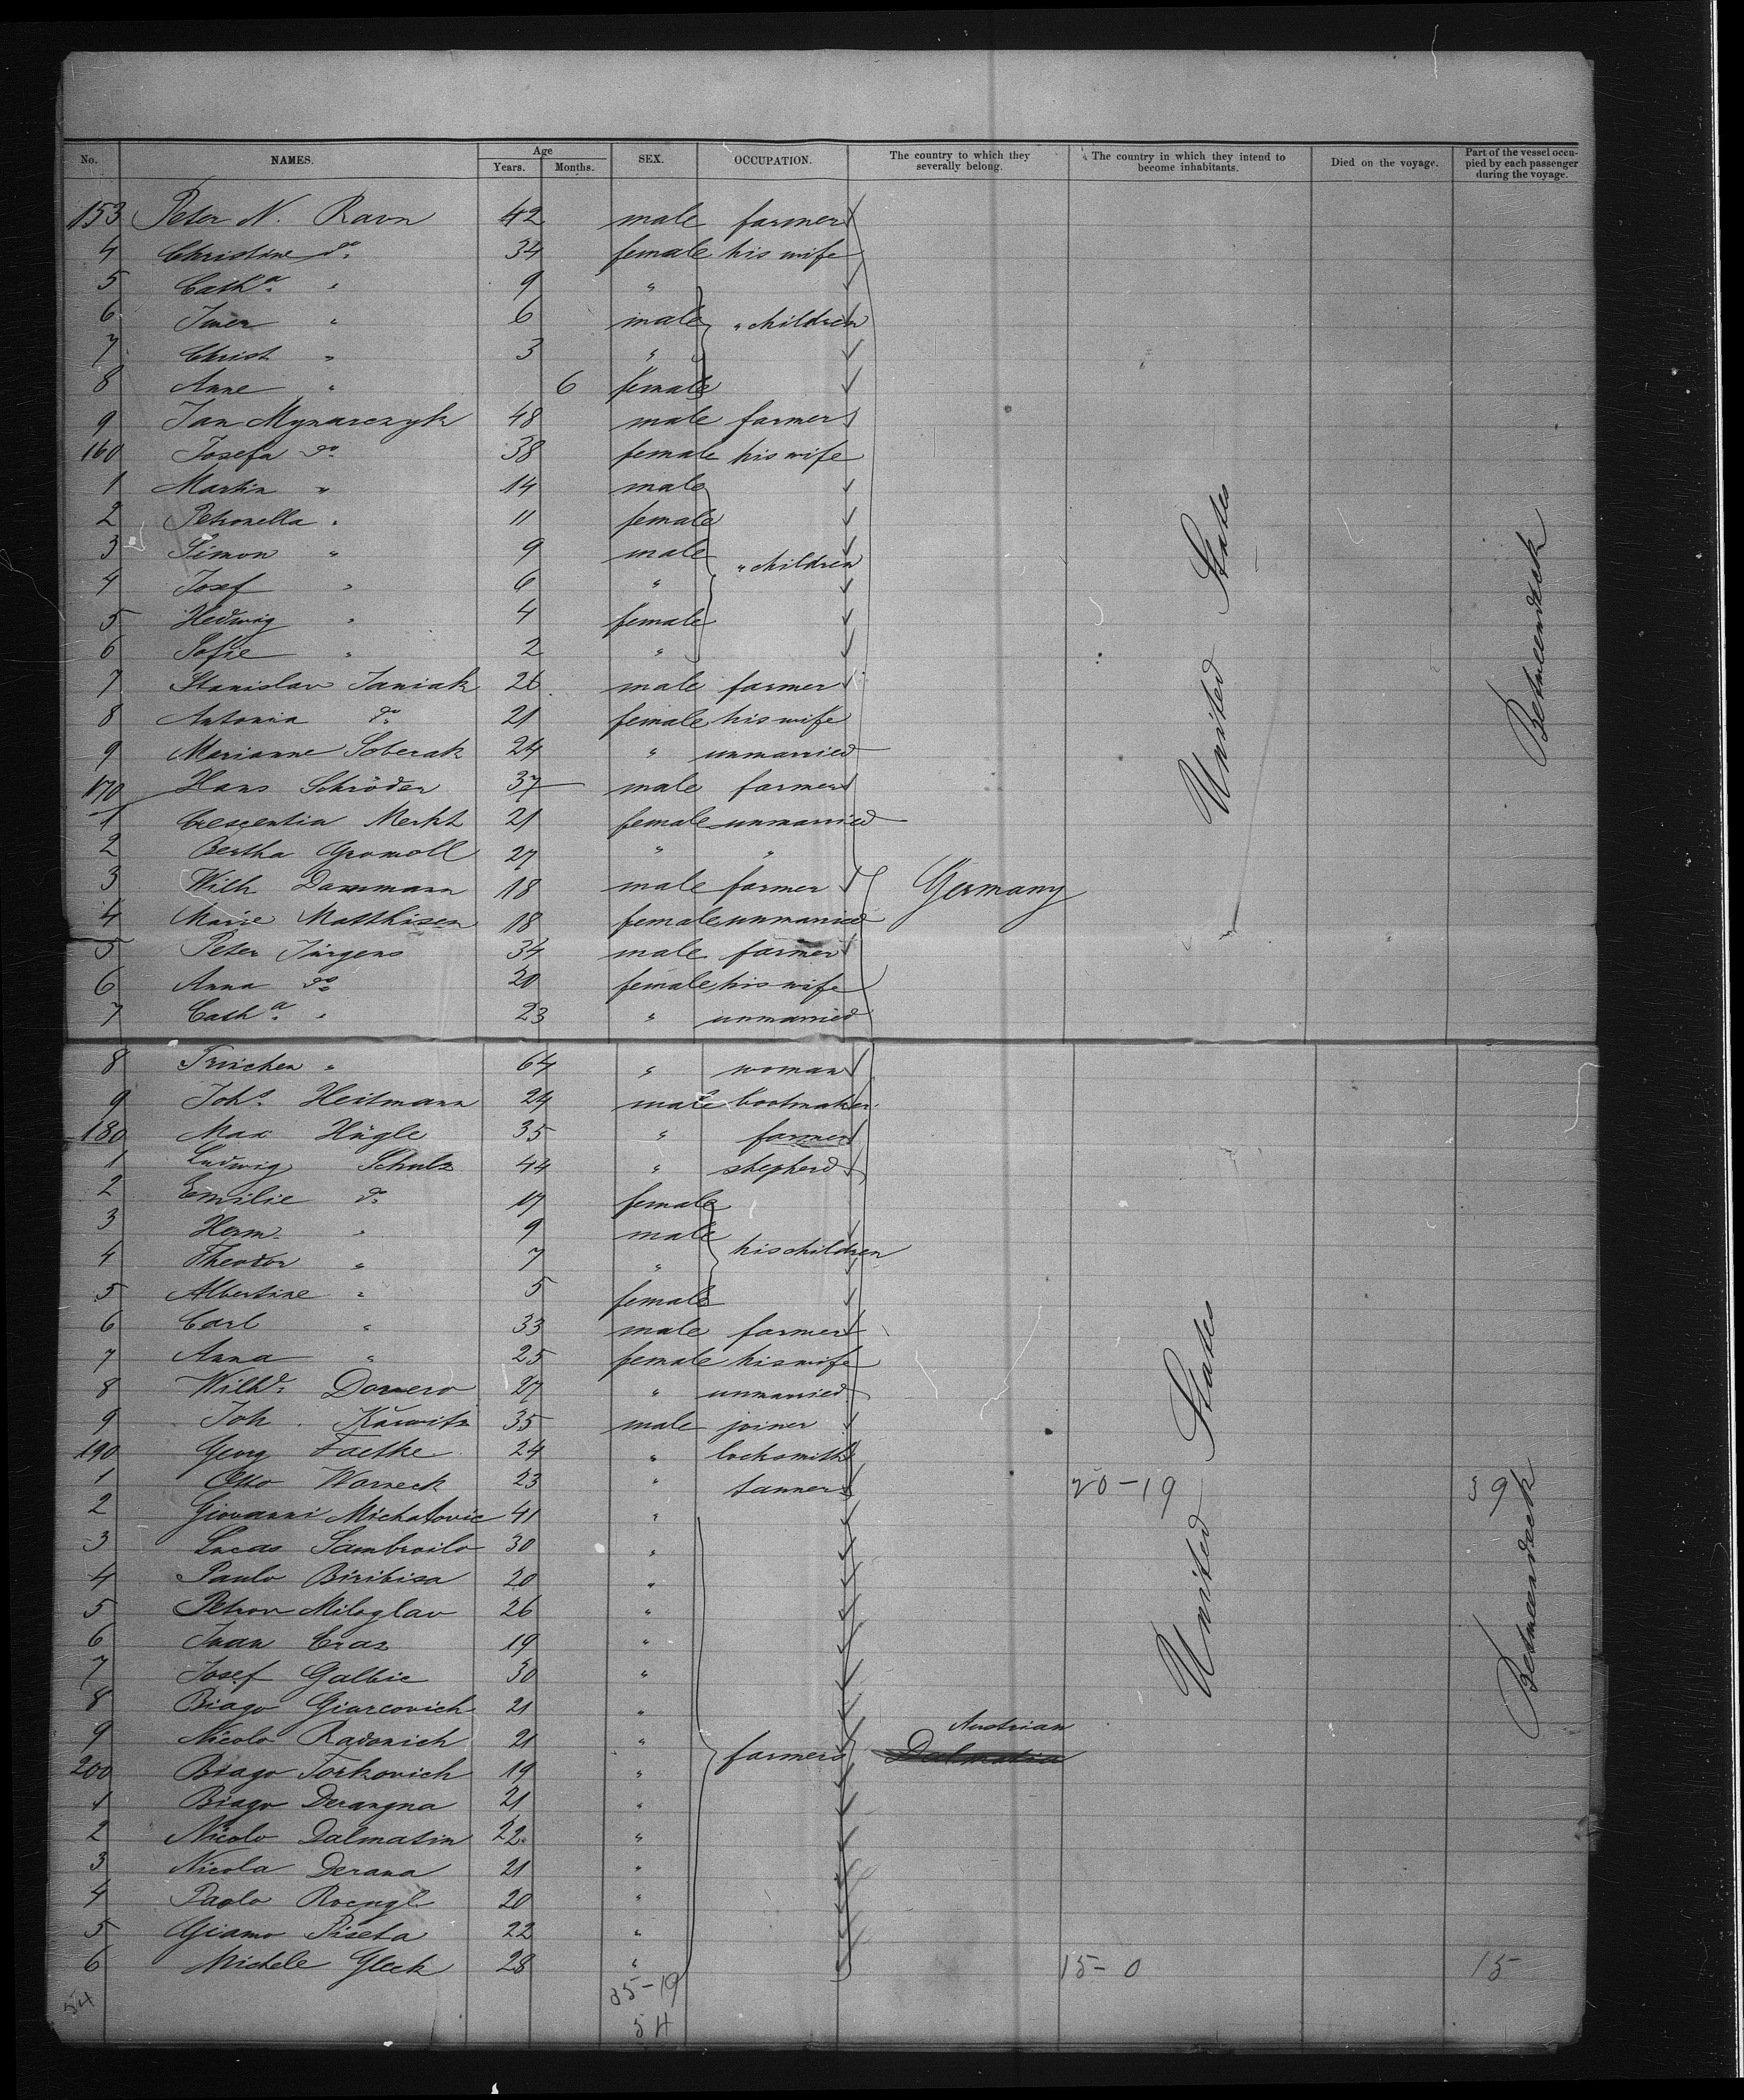 No. NAMES. Age Years. Months. SEX. OCCUPATION. The country to which they severally belong. The country in which they intend to become inhabitants. Died on the voyage. Part of the vessel occupied by each passenger during the voyage.
153 Peter N. Ravn 42 male farmer
4 Christine do. 34 female his wife
5 Catha. " 9 "
6 Iwer " 6 male " children
7 Christ. " 3 "
8 Anne " 6 female
9 Jan Mynarczyk 48 male farmer
160 Josefa do. 38 female his wife
1 Martin " 14 male
2 Petronella " 11 female
3 Simon " 9 male " children
4 Josef " 6 "
5 Hedwig " 4 female
6 Sofie " 2 "
7 Stanislav Janiak 26 male farmer
8 Antonia do. 21 female his wife
9 Marianne Soberak 24 " unmarried
170 Hans Schröder 37 male farmer
1 Crescentia Merkt 21 female unmarried
2 Bertha Gromoll 27 " "
3 Wilh Dammann 18 male farmer Germany
4 Marie Matthisen 18 female unmarried
5 Peter Jürgens 34 male farmer
6 Anna do. 20 female his wife
7 Catha. " 23 " unmarried
8 Trinchen " 64 " woman
9 Johs. Heitmann 24 male bootmaker
180 Max Hügle 35 " farmer
1 Ludwig Schulz 44 " shepherd
2 Emilie do. 17 female
3 Herm. " 9 male his children
4 Theodor " 7 "
5 Albertine " 5 female
6 Carl " 33 male farmer
7 Anna " 25 female his wife
8 Wilhe. 27 " unmarried
9 Joh. 35 male joiner
190 Georg Faethe 24 " locksmith
1 Otto Warneck 23 " tanner 20-19 39
2 Giovanni Michatovic 41 "
3 Lucas Sambrailo 30 "
4 Paulo Biribisa 20 "
5 Petrov Miloglav 26 "
6 Ivan Eraz 19 "
7 Josef Galbic 30 "
8 Biago Giarcovich 21 "
9 Nicolo Radonich 21 " farmers Austrian
Dalmatia
200 Biago Torkovich 19 "
1 Biago Derangna 21 "
2 Nicolo Dalmatin 22 "
3 Nicola Derana 21 "
4 Paolo 20 "
5 Giamo Piseta 22 "
6 Michele Gleck 28 " 15-0 15
54 35-19
54
United States
United States
Betweendeck
Betweendeck